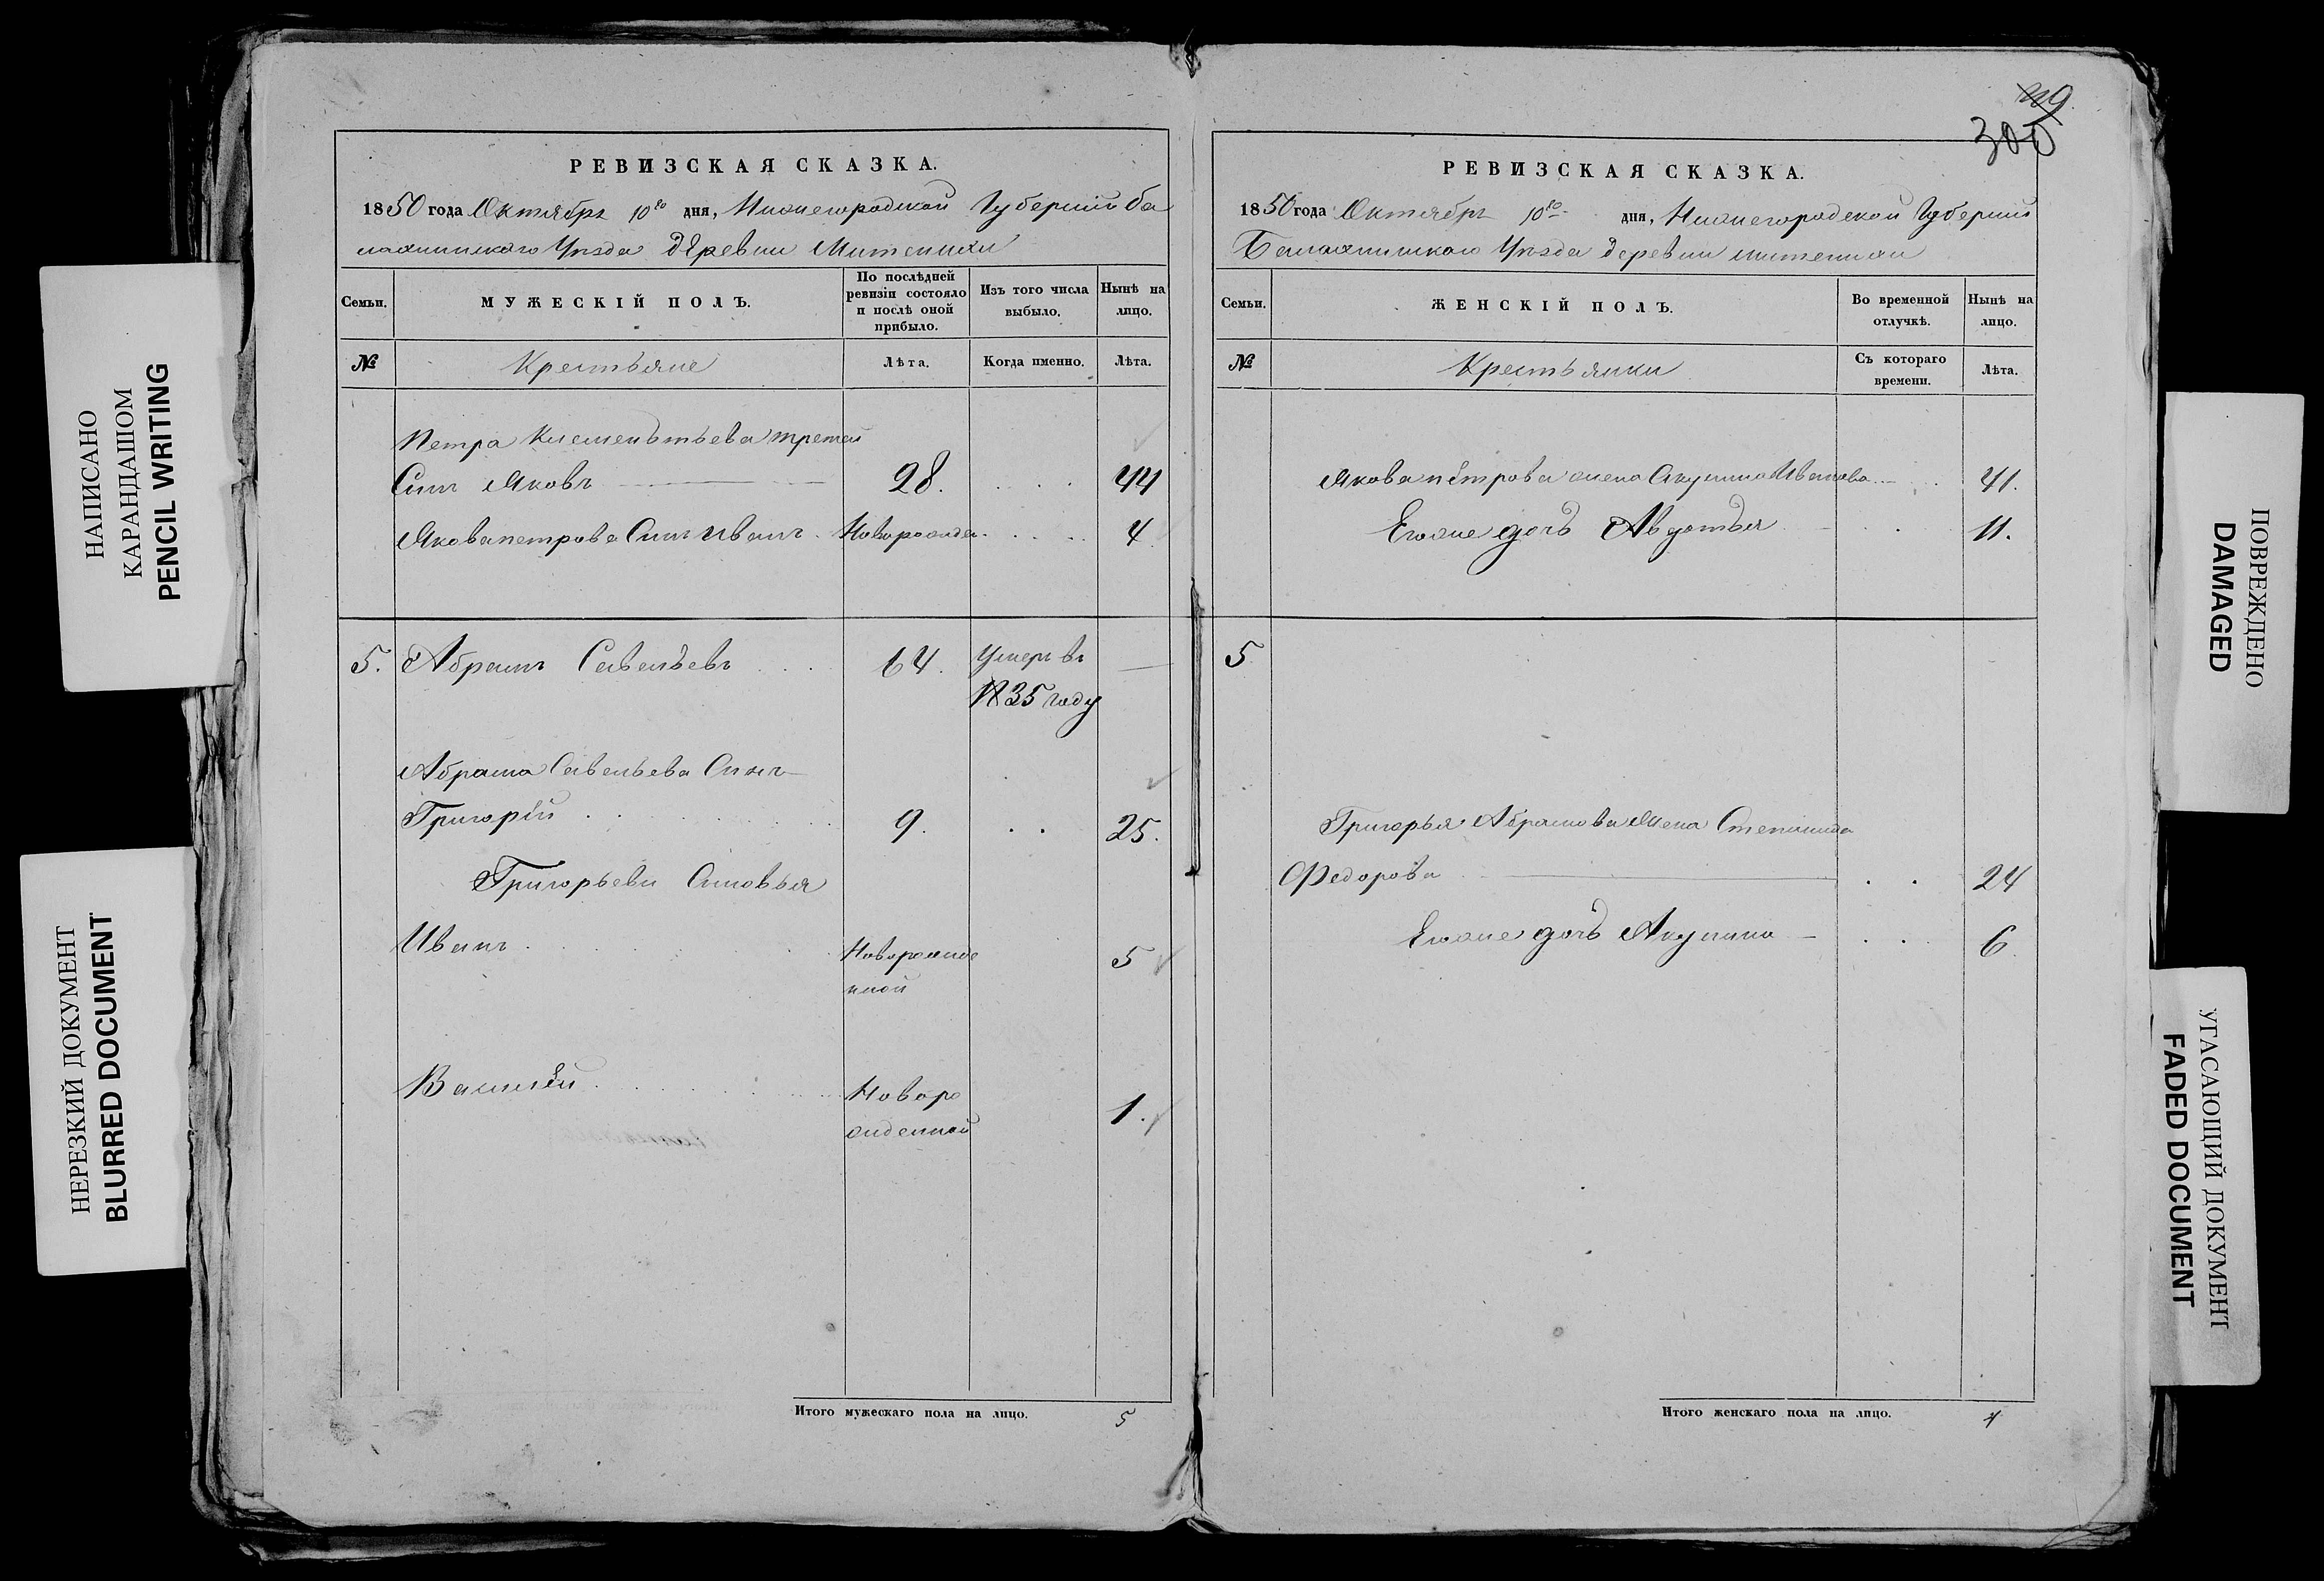 НАПИСАНО
КАРАНДАШОМ
PENCIL WRITING
НЕРЕЗКИЙ ДОКУМЕНТ
BLURRED DOCUMENT
РЕВИЗСКАЯ СКАЗКА.
1850 года Октября 10го дня, Нижегородской Губернии Ба
лахнинского Уѣзда деревни Митенихи
Семьи.
МУЖЕСКІЙ ПОЛЪ.
По послѣдней ревизіи состояло и послѣ оной прибыло.
Изъ того числа выбыло.
Нынѣ на лицо.
№
Крестьяне
Лѣта.
Когда именно.
Лѣта.
Петра Клементьева третей
Сынъ Яковъ 28. 44
Якова петрова Сынъ Иванъ. Новорожде. 4
5. Абрамъ Савельевъ 64. умеръ въ —
1835 году
Абрама Савельева Сынъ
Григорій 9. 25.
Григорьевы Сыновья
Иванъ Новорожде 5
нной
Василѣй Новоро 1.
жденной
Итого мужескаго пола на лицо. 5
29
300
РЕВИЗСКАЯ СКАЗКА.
1850 года Октября 10го дня, Нижегородской Губернии
Балахнинского Уѣзда деревни митенихи
Семьи.
ЖЕНСКІЙ ПОЛЪ.
Во временной отлучкѣ.
Нынѣ на лицо.
№
Крестьянки
Съ котораго времени.
Лѣта.
Якова петрова жена Акулина Иванова 41.
Егоже дочь Авдотья 11.
5
Григорья Абрамова жена Степанида
Федорова 24
Егоже дочь Акулина 6.
Итого женскаго пола на лицо. 4
ПОВРЕЖДЕНО
DAMAGED
УГАСАЮЩИЙ ДОКУМЕНТ
FADED DOCUMENT